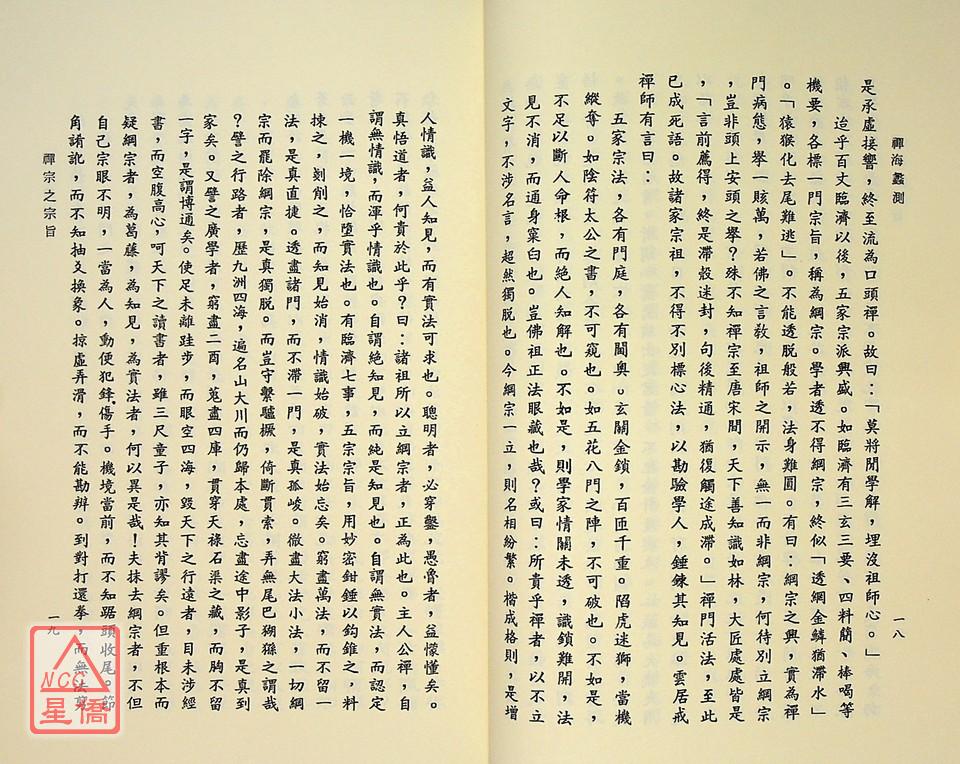 禪海蠡測
一八
是承虛接響，終至流為口頭禪。故曰：「莫將閒學解，埋沒祖師心。」
迨乎百丈臨濟以後，五家宗派興盛。如臨濟有三玄三要、四料簡、棒喝等
機要，各標一門宗旨，稱為綱宗。學者透不得綱宗，終似「透網金鱗猶滯水」
。「猿猴化去尾難逃」。不能透脫般若，法身難圓。有曰：綱宗之興，實為禪
門病態，舉一賅萬，若佛之言教，祖師之開示，無一而非綱宗，何待別立綱宗
，豈非頭上安頭之舉？殊不知禪宗至唐宋間，天下善知識如林，大匠處處皆是
，「言前薦得，終是滯殼迷封，句後精通，猶復觸途成滯。」禪門活法，至此
已成死語。故諸家宗祖，不得不別標心法，以勘驗學人，錘鍊其知見。雲居戒
禪師有言曰：
。五家宗法，各有門庭，各有閫奧。玄關金鎖，百匝千重。陷虎迷獅，當機
縱奪。如陰符太公之書，不可窺也。如五花八門之陣，不可破也。不如是，
不足以斷人命根，而絕人知解也。不如是，則學家情關未透，識鎖難開，法
見不消，而通身窠臼也。豈佛祖正法眼藏也哉？或曰：所貴乎禪者，以不立
文字，不涉名言，超然獨脫也。今綱宗一立，則名相紛繁。楷成格則，是增
人情識，益人知見，而有實法可求也。聰明者，必穿鑿，愚魯者，益懞懂矣。
真悟道者，何貴於此乎？曰：諸祖所以立綱宗者，正為此也。主人公禪，自
謂無情識，而渾乎情識也。自謂絕知見，而純是知見也。自謂無實法，而認定
一機一境，恰墮實法也。有臨濟七事，五宗宗旨，用妙密鉗錘以鈎錐之，料
揀之，剗削之，而知見始消，情識始破，實法始忘矣。窮盡萬法，而不留一
法，是真直捷。透盡諸門，而不滯一門，是真孤峻。徹盡大法小法，一切綱
宗而罷除綱宗，是真獨脫。而豈守繫驢橛，倚斷貫索，弄無尾巴猢猻之謂哉
？譬之行路者，歷九洲四海，遍名山大川而仍歸本處，忘盡途中影子，是真到
家矣。又譬之廣學者，窮盡二酉，蒐盡四庫，貫穿天祿石渠之藏，而胸不留
一字，是謂博通矣。使足未離跬步，而眼空四海，毀天下之行遠者，目未涉經
書，而空腹高心，呵天下之讀書者，雖三尺童子，亦知其背謬矣。但重根本而
疑綱宗者，為葛藤，為知見，為實法者，何以異是哉！夫抹去綱宗者，不但
自己宗眼不明，一當為人，動便犯鋒傷手。機境當前，而不知踞頭收尾。節
角誵訛，而不知抽爻換象。掠虛弄滑，而不能勘辨。到對打還拳，而無法
禪宗之宗旨
一九
NCC
星僑